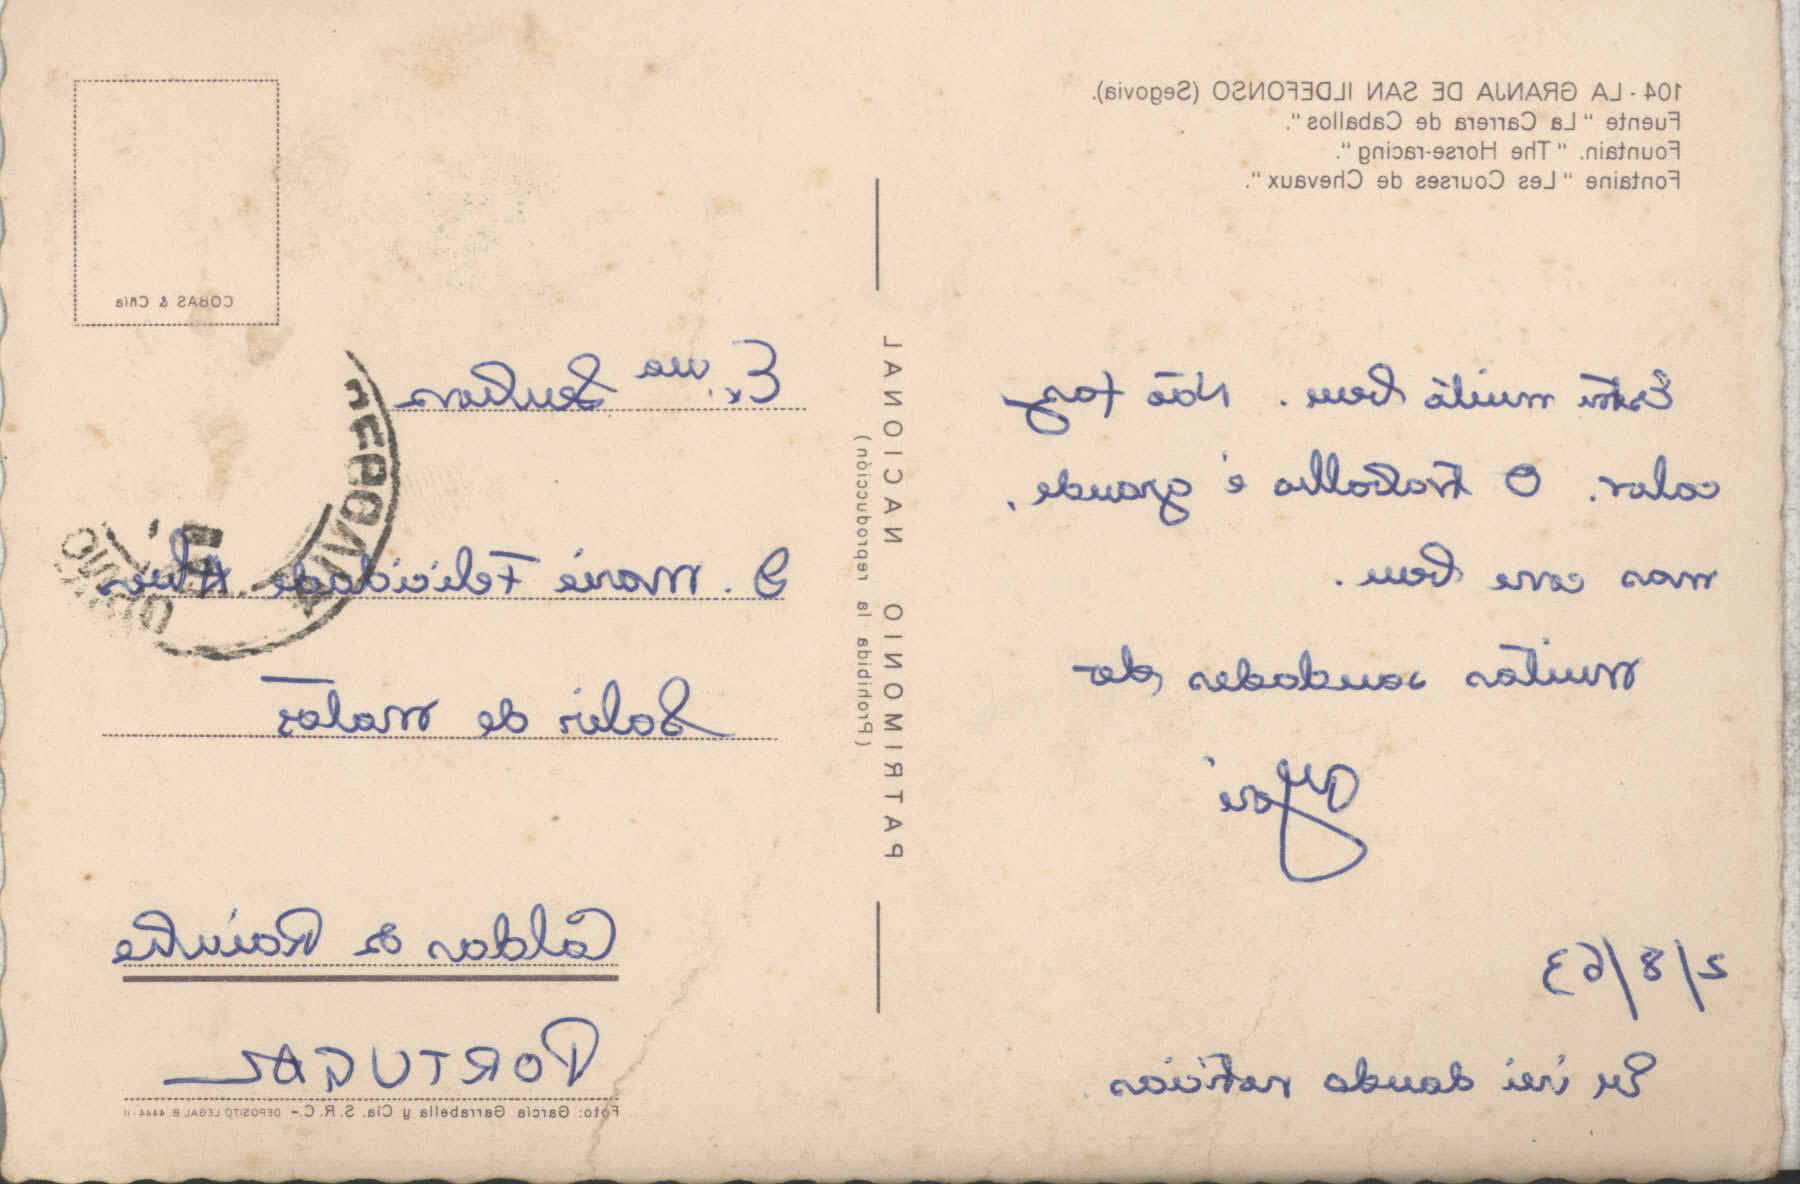 104 - LA GRANJA DE SAN ILDEFONSO (Segovia).
Fuente "La Carrera de Caballos".
Fountain. "The Horse-racing".
Fontaine "Les Courses de Chevaux".
Estou muito bem. Não faz
calor. O trabalho é grande,
mas corre bem.
Muitas saudades do
2/8/63
Eu irei dando notícias
PATRIMONIO NACIONAL
(Prohibida la reproducción)
COBAS & Cñia
Ex.ma Senhora
D. Maria Felicidade Alves
Solar de Matos
Caldas da Rainha
PORTUGAL
Foto: García Garrabella y Cía. S.R.C. - DEPOSITO LEGAL B. 4444